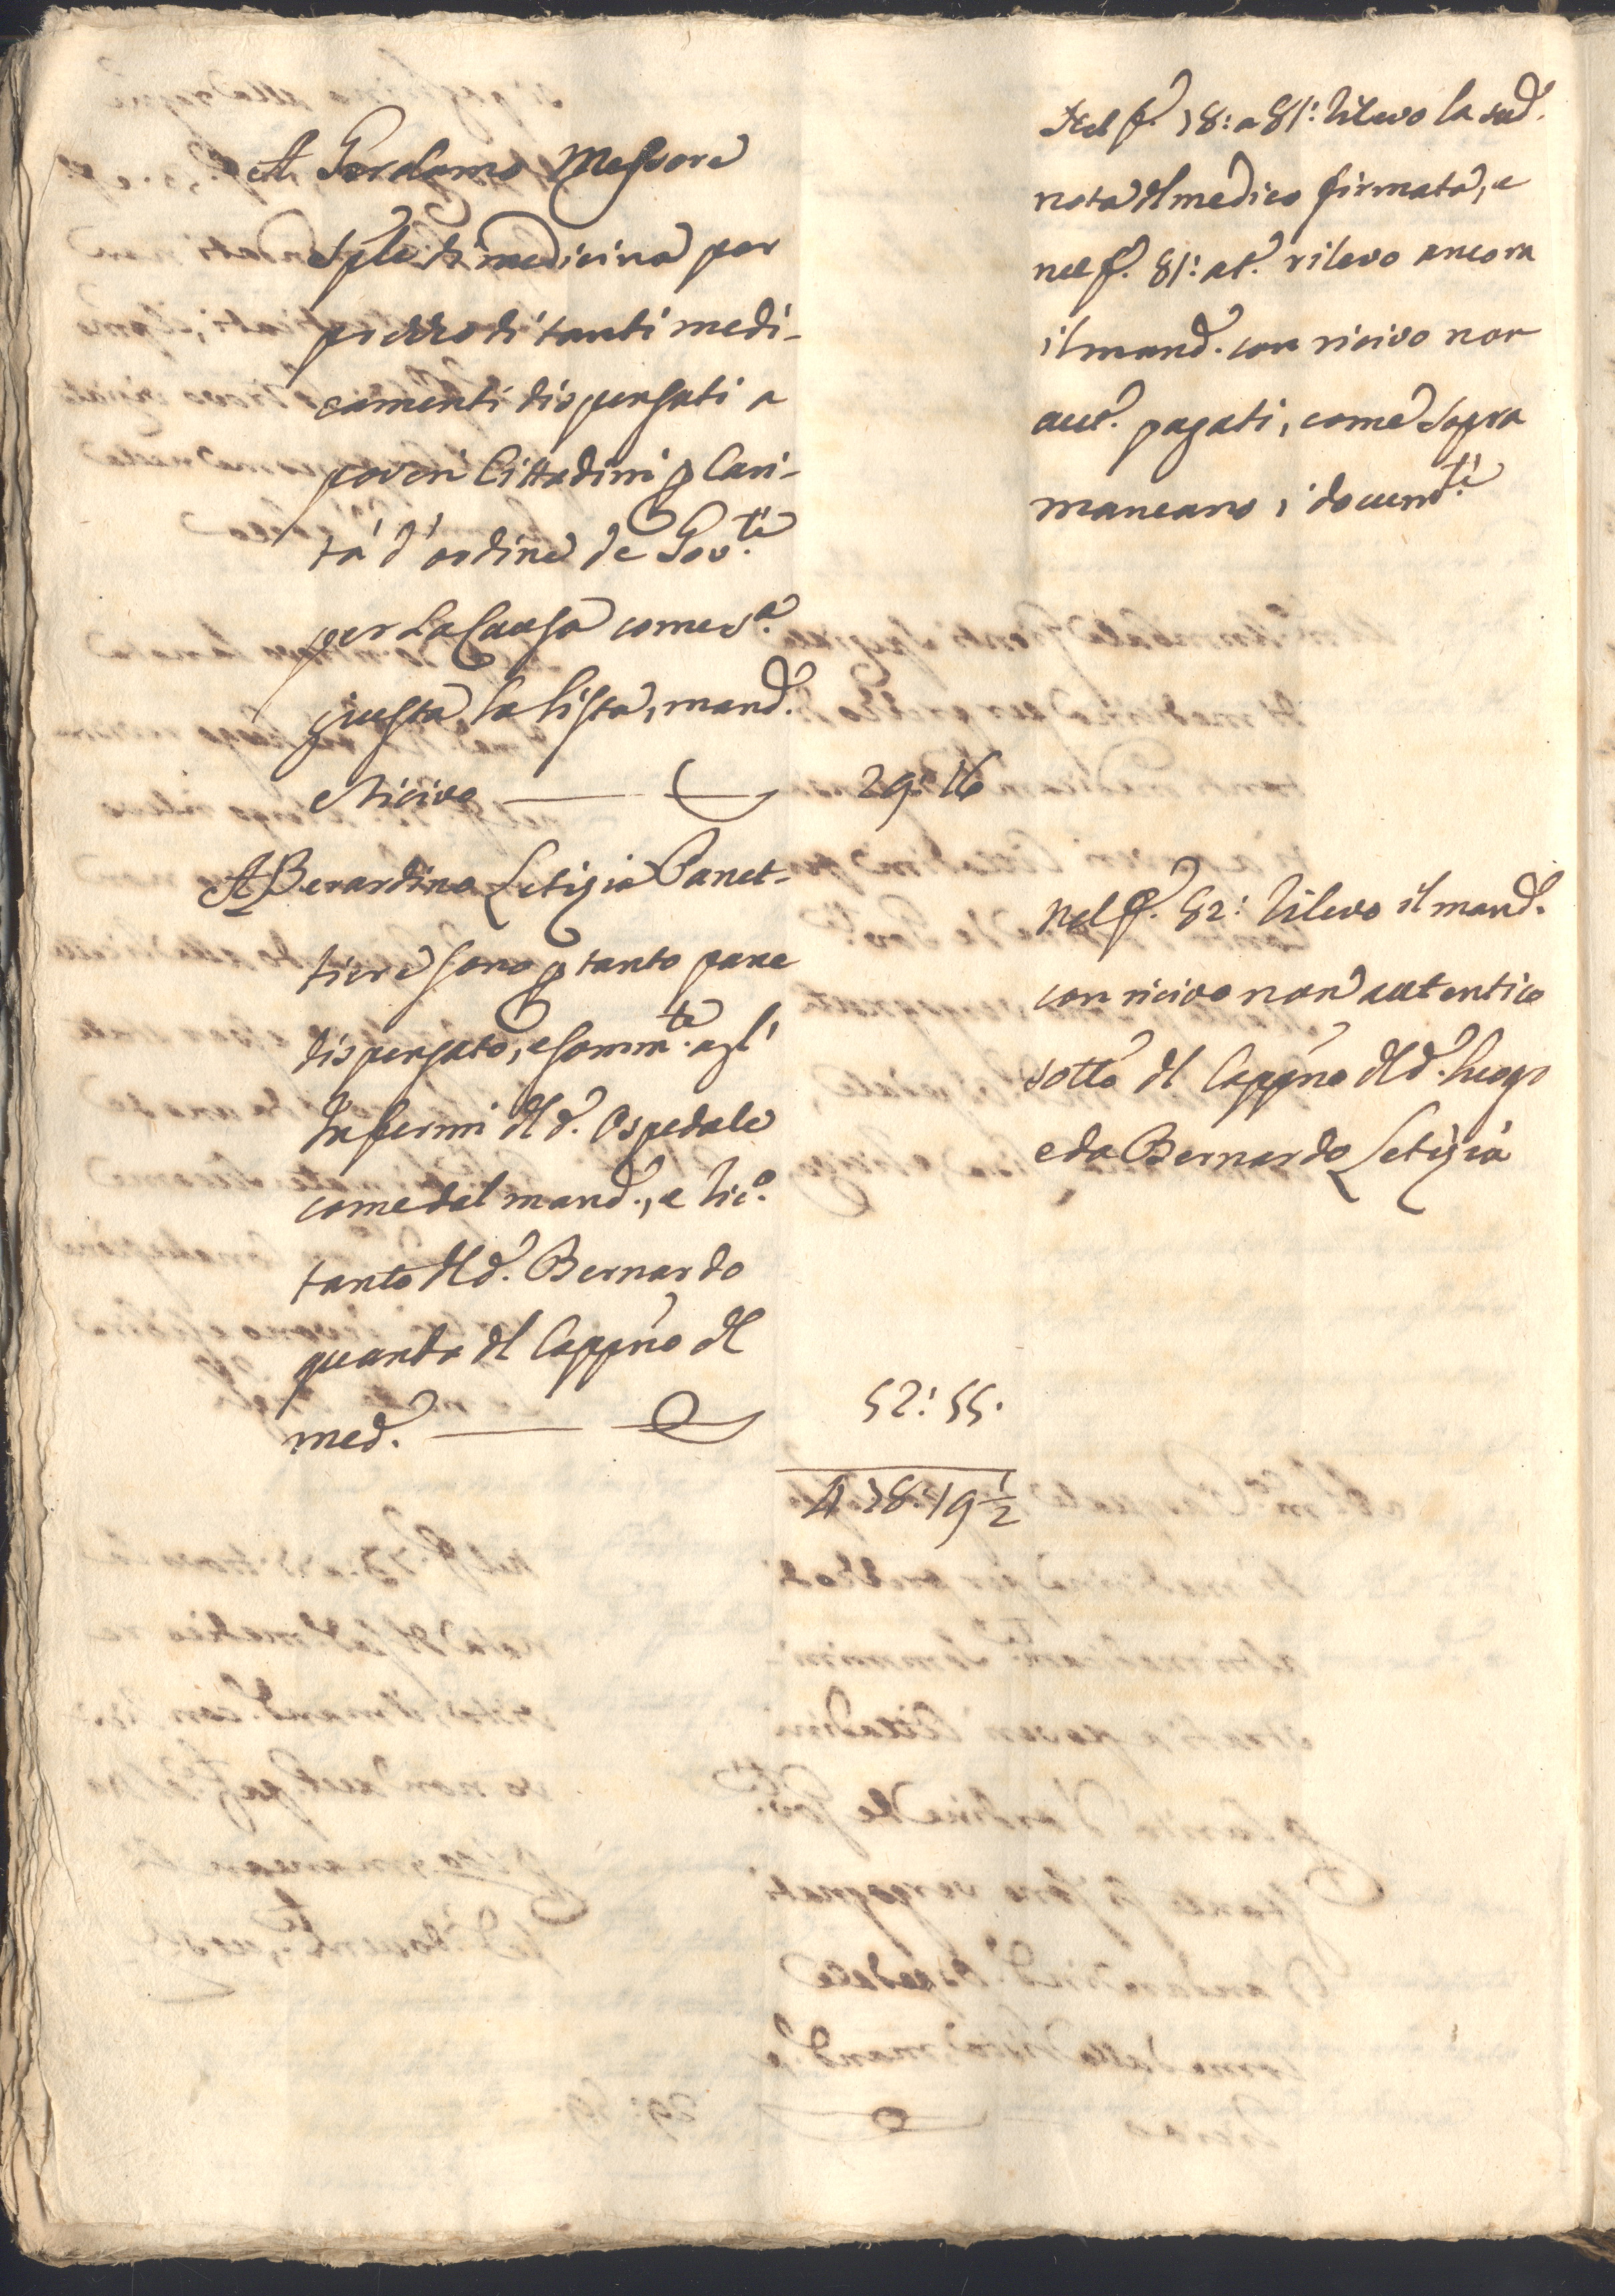 A Gerolamo Messore
Sple di medicina per
prezzo di tanti medi-
camenti dispensati a
poveri Cittadini p Cari-
tà d'ordine de Gov.ti
per La Causa come s.a
giusta la lista, mand.
e ricivo
29: 16
A Berardino Letizia Panet-
tiere sono p tanto pane
dispensato, e somm.te agl'
Infermi dl d. Ospedale
come dal mand., e ric.o
tanto dl d. Bernardo
quanto dl Cappno dl
med.
52: 55.
478: 19 1/2
Nel f. 78: a 81: rilevo la sud.
nota dl medico firmata, e
nel f. 81: at. rilevo ancora
il mand. con ricivo non
aut. pagati, come sopra
mancano i docum.ti
Nel f. 82: rilevo il mand.
con ricivo non autentico
sotto dl Cappno dl d. luogo
e da Bernardo Letizia